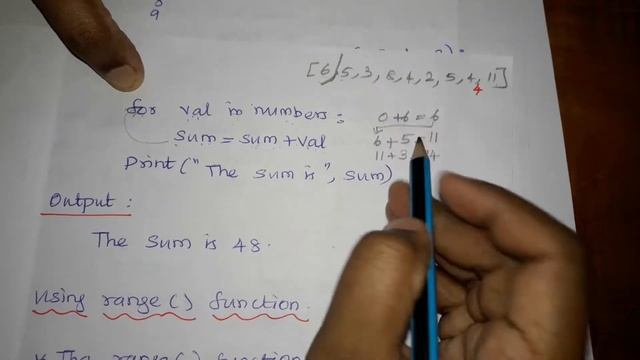 9
[6,5,3,8,4,2,5,4,11]
4
for val in numbers:
0+6=6
sum = sum+val
6+5=11
11+3=14
Print("The sum is", sum)
Output:
The sum is 48.
Using range() function.
* The range() function